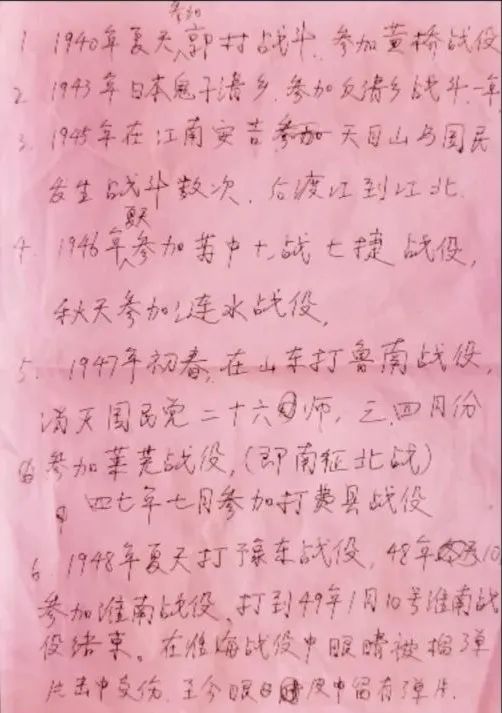 参加
1 1940年夏天郭村战斗、参加黄桥战役
2 1943年日本鬼子清乡,参加反清乡战斗一年
3. 1945年在江南安吉参加天目山与国民
发生战斗数次、后渡江到江北.
夏天
4. 1946年参加苏中七战七捷战役,
秋天参加涟水战役,
5. 1947年初春,在山东打鲁南战役,
消灭国民党二十六师,三.四月份
参加莱芜战役,(即南征北战)
四七年七月参加打费县战役
6 1948年夏天打豫东战役,48年10
参加淮南战役,打到49年1月10号淮南战
役结束。在淮海战役中眼睛被榴弹
片击中受伤.至今眼皮中留有弹片.